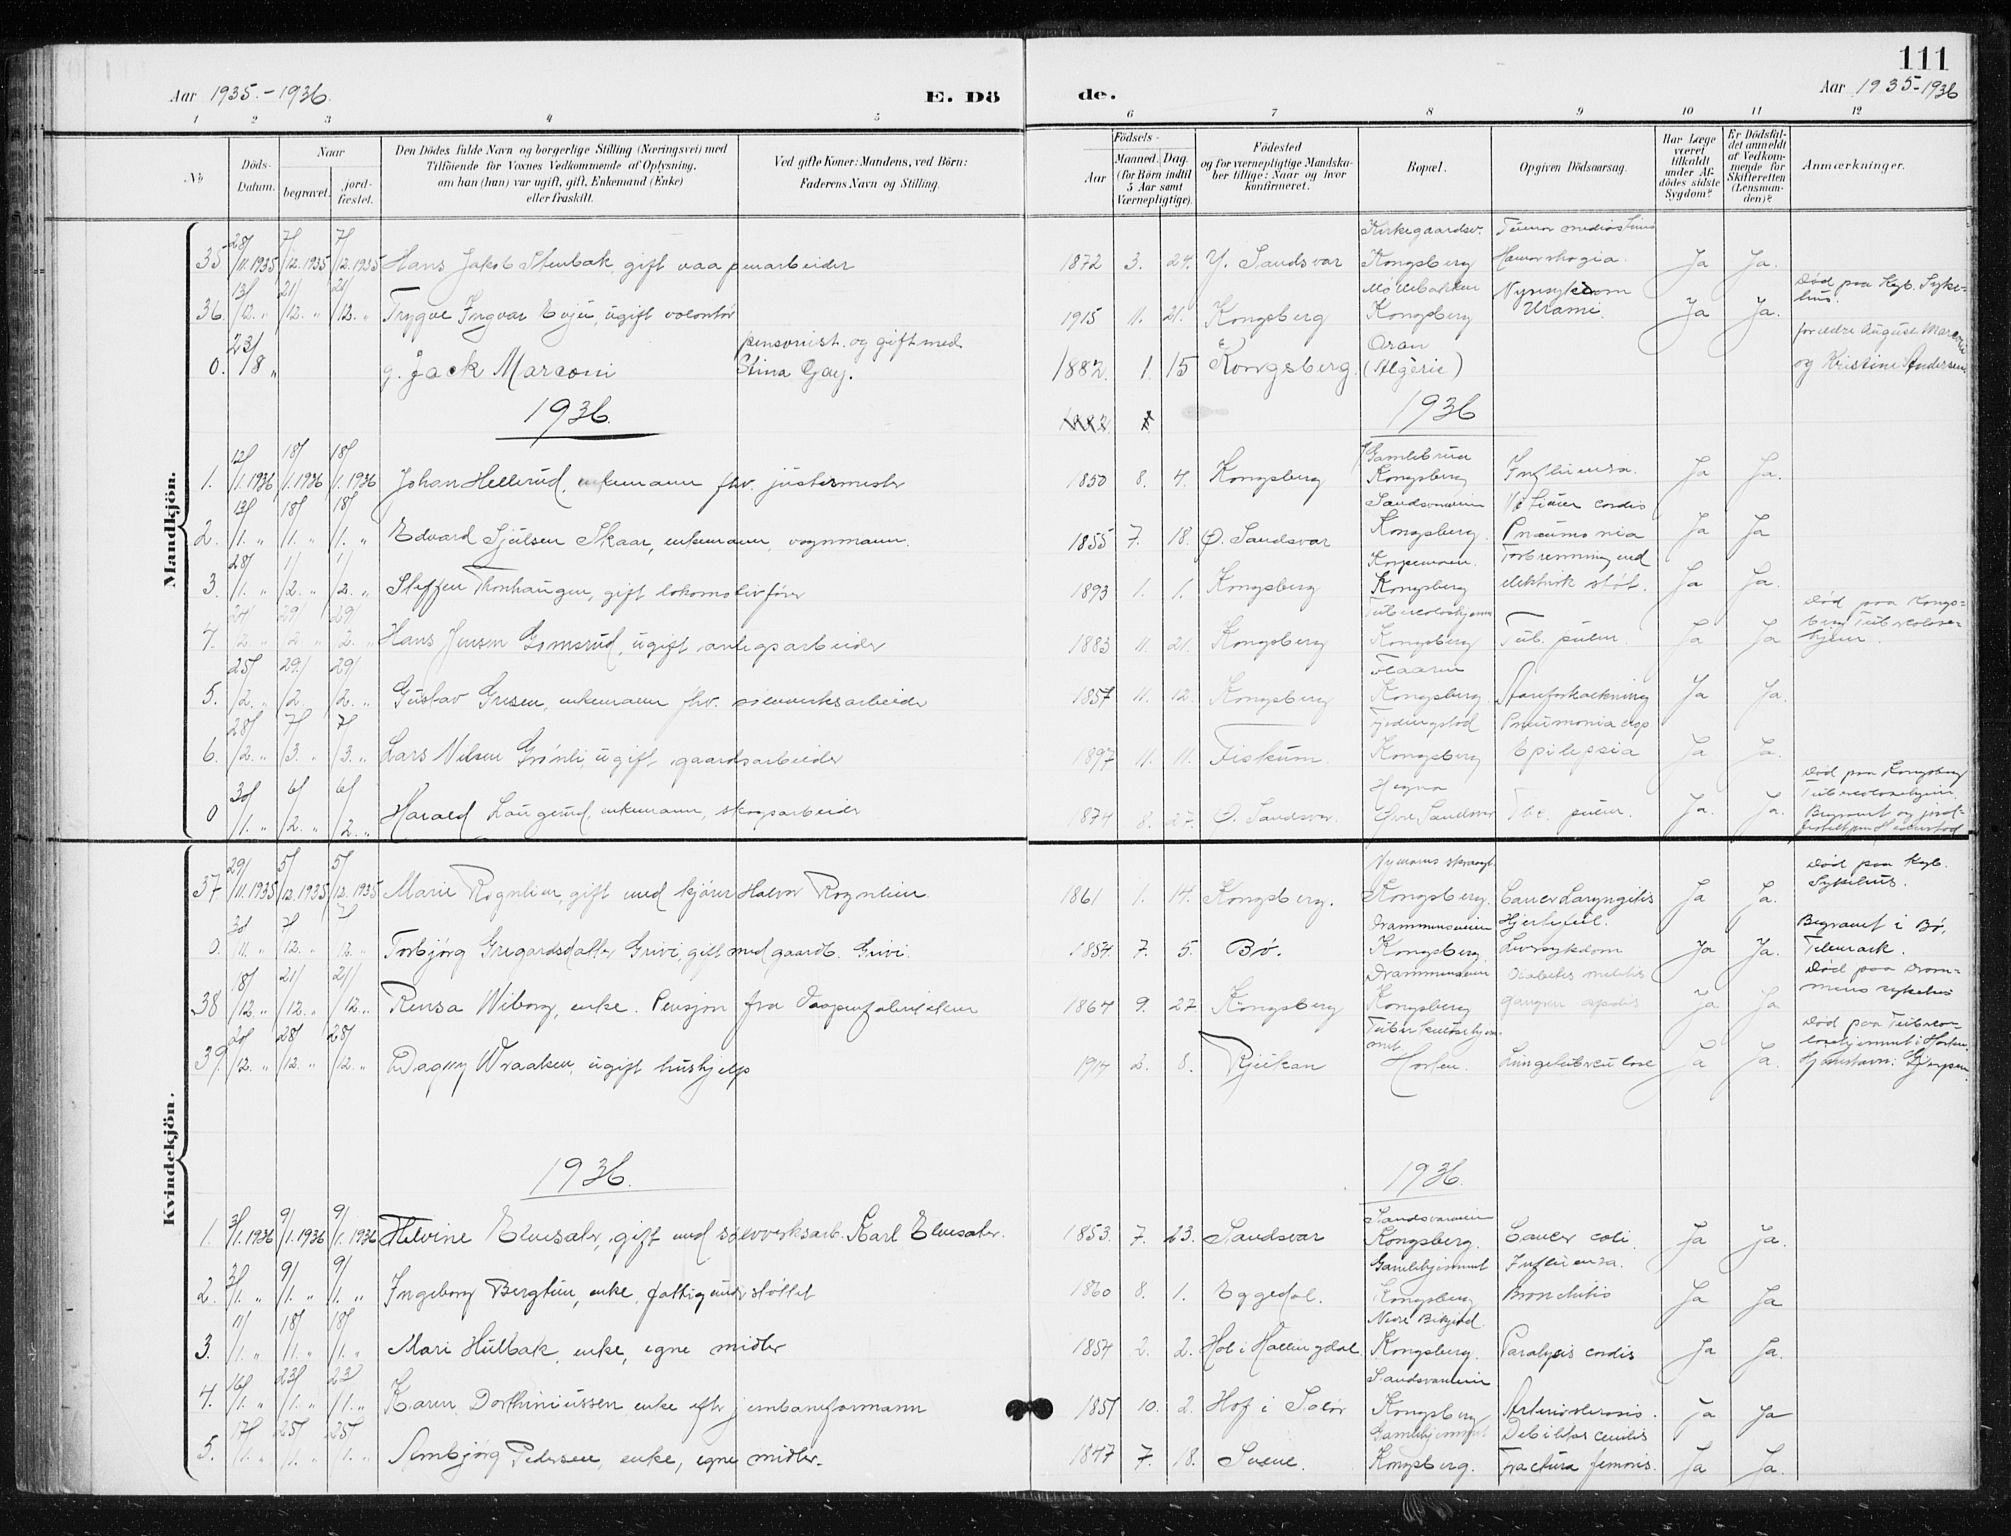 111
Aar 1935.-1936. E. Dö de. Aar 1935-1936
1 2 3 4 5 6 7 8 9 10 11 12
No. Döds-Datum. Naar begravet. jordfæstet. Den Dödes fulde Navn og borgerlige Stilling (Næringsvei) med Tilföiende for Voxnes Vedkommende af Oplysning, om han (hun) var ugift, gift, Enkemand (Enke) eller fraskilt. Ved gifte Koner: Mandens, ved Börn: Faderens Navn og Stilling. Födsels- Aar Maaned. Dag. (for Börn indtil 5 Aar samt Værnepligtige). Födested og for værnepligtige Mandskaber tillige: Naar og hvor konfirmeret. Bopæl. Opgiven Dödsaarsag. Har Læge været tilkaldt under Afdödes sidste Sygdom? Er Dödsfaldet anmeldt af Vedkommende for Skifteretten (Lensmanden)? Anmærkninger.
Mandkjön.
35 28/11.1935 7/12.1935 7/12.1935 Hans Jakob Stenbak, gift vaapenarbeider 1872 3. 24. Y. Sandsvar Kirkegaardsv. Kongsberg Tumor Ja Ja.
36. 13/12. " 21/12. " 21/12. " Trygve Ingvar Evju, ugift volontør 1915 11. 21. Kongsberg Kongsberg Nyresykdom Urämi. Ja Ja. Død paa Kgb. Sykehus.
0. 23/8 " g. Jack Marconi pensionist. og gift med Stina Gay. 1882. 1. 15 Kongsberg. Oran (Algérie) foreldre August Marconi og Kristine Andersen
1936. 1936
1. 12/1.1936 18/1.1936 18/1.1936 Johan Hellerud, enkemann fhv. justermester 1850 8. 4. Kongsberg Gamlebrua Kongsberg Influensa. Ja Ja.
2. 13/1. " 18/1. " 18/1. " Edvard Sjulsen Skaar, enkemann, vognmann. 1855 7. 18. Ø. Sandsvar Sandsvarveien Kongsberg. Vitium cordis Pneumonia Ja Ja
3. 28/1. " 1/2. " 1/2. " Steffen Thonhaugen, gift lokomotivfører 1893 1. 1. Kongsberg Korpemoen. Kongsberg Forbrenning ved elektrisk støt. Ja Ja.
4. 24/2. " 29/2 " 29/2. " Hans Jensen Gomsrud, ugift anlegsarbeider 1883 11. 21. Kongsberg Tuberculosehjem Kongsberg Tub. pulm. Ja Ja Død paa Kongsberg Tuberculosehjem.
5. 25/2. " 29/2. " 29/2. " Gustav Gresen, enkemann fhv. sølvverksarbeider 1857 11. 12. Kongsberg Kongsberg Aareforkalkning Ja Ja.
6. 28/2. " 7/3. " 7/3. " Lars Nilsen Grønli, ugift gaardsarbeider 1897 11. 11. Fiskum. Kongsberg Pneumonia Epilepsia Ja Ja.
0 30/1. " 6/2. " 6/2. " Harald Laugerud, enkemann, skogsarbeider 1874 8. 27. Ø. Sandsvar. Hegna Øvre Sandsvar Tbc. pulm. Ja. Ja. Død paa Kongsberg Tuberculosehjem. Begravet og jordfestet
Kvindekjön.
37 29/11.1935 5/12.1935 5/12.1935 Marie Rognlien, gift med kjører Halvor Rognlien. 1861 1. 14. Kongsberg. Kongsberg. Cancer Laryngitis Ja Ja. Død paa Kgb. Sykehus.
0. 30/11. " 7/12. " 7/12. " Torbjørg Gregardsdatter Grivi, gift med gaardb. Grivi. 1854. 7. 5. Bø. Drammensveien Kongsberg. Hjertefeil. Leversykdom Ja Ja. Begravet i Bø, Telemark.
38 18/12. " 21/12. " 21/12. " Rensa Wiborg, enke. Pensjon fra Vaapenfabrikken 1864 9. 27 Kongsberg Drammensveien Kongsberg Diabetes melitis Ja Ja Død paa Drammens sykehus
39. 20/12. " 28/12. " 28/12. " Dagny Wraaken, ugift hushjelp 1914 2. 8. Rjukan Horten. Lungetuberculose Ja Ja. Død paa Tuberculosehjemmet i Horten. Hjemstavn: Gjerpen.
1936. 1936.
1. 3/1.1936 9/1.1936 9/1.1936 Helvine Elvesæter, gift med sølvverksarb. Karl Elvesæter. 1853. 7. 23. Sandsvar Sandsvarveien Kongsberg. Cancer coli. Ja Ja.
2. 3/1. " 9/1. " 9/1. " Ingeborg Berglien, enke, fattigunderstøttet 1860 8. 1. Eggedal. Gamlehjemmet Kongsberg Influensa. Bronchitis Ja Ja
3. 11/1. " 18/1. " 18/1. " Mari Hulbak, enke, egne midler 1854 2. 2. Hol i Hallingdal. Kongsberg. Paralysis cordis Ja Ja.
4. 16/1. " 23/1. " 23/1. " Karen Dorthiniussen enke efter jernbaneformann 1851 10. 2. Hof i Solør Sandsvarveien Kongsberg Arteriosclerosis. Ja Ja
5. 17/1. " 25/1. " 25/1. " Sembjørg Pedersen, enke, egne midler. 1847 7. 18. Svene. Gamlehjemmet Kongsberg. Debilitas cenilis Fractura femoris. Ja Ja.